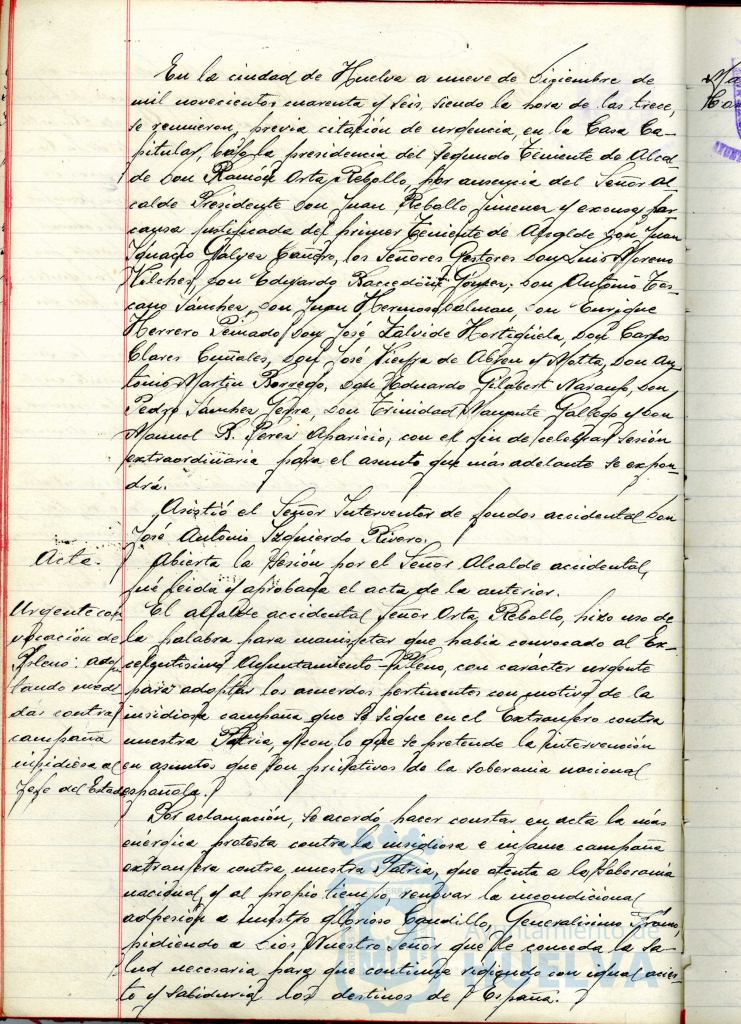 En la ciudad de Huelva a nueve de Diciembre de
mil novecientos cuarenta y seis, siendo la hora de las trece,
se reunieron, previa citación de urgencia, en la Casa Ca-
pitular, bajo la presidencia del Segundo Teniente de Alcal-
de Don Ramón Orta Rebollo, por ausencia del Señor Al-
calde Presidente Don Juan Rebollo Jimenez y excusa, por
causa justificada del primer Teniente de Alcalde Don Juan
Ignacio Galvez Cañero, los Señores Gestores Don Luis Moreno
Vilches, Don Eduardo Gómez, Don Antonio Tos-
cano Sánchez, Don Juan Hermoso Don Enrique
Herrero Peinado, Don José Zalvide Hortigüela, Don Carlos
Clares Don José Vieyra de Abreu y Motta, Don An-
tonio Martin Borrego, Don Eduardo Gilabert Naranjo, Don
Pedro Sánchez Don Trinidad Navante Gallego y Don
Manuel R. Perez Aparicio, con el fin de celebrar sesión
extraordinaria para el asunto que más adelante se expon-
drá.
Asistió el Señor Interventor de fondos accidental Don
José Antonio Izquierdo Rivero.
Acta.
Abierta la Sesión por el Señor Alcalde accidental,
fué leida y aprobada el acta de la anterior.
Urgente con-
vocación de
Pleno: adop-
tando medi-
das contra
campaña
insidiosa al
Jefe del Estado
El alcalde accidental Señor Orta Rebollo, hizo uso de
la palabra para manifestar que habia convocado al Ex-
celentisimo Ayuntamiento Pleno, con carácter urgente
para adoptar los acuerdos pertinentes con motivo de la
insidiosa campaña que se sigue en el Extranjero contra
nuestra Patria, y con lo que se pretende la intervención
en asuntos que son privativos de la soberania nacional
española.
Por aclamación, se acordó hacer constar en acta la más
enérgica protesta contra la insidiosa e infame campaña
extranjera contra nuestra Patria, que atenta a la Soberania
nacional, y al propio tiempo, renovar la incondicional
adhesión a nuestro glorioso Caudillo, Generalisimo Franco,
pidiendo a Dios Nuestro Señor que le conceda la sa-
lud necesaria para que continue rigiendo con igual acier-
to y Sabiduria los destinos de España.
Ayuntamiento de
HUELVA